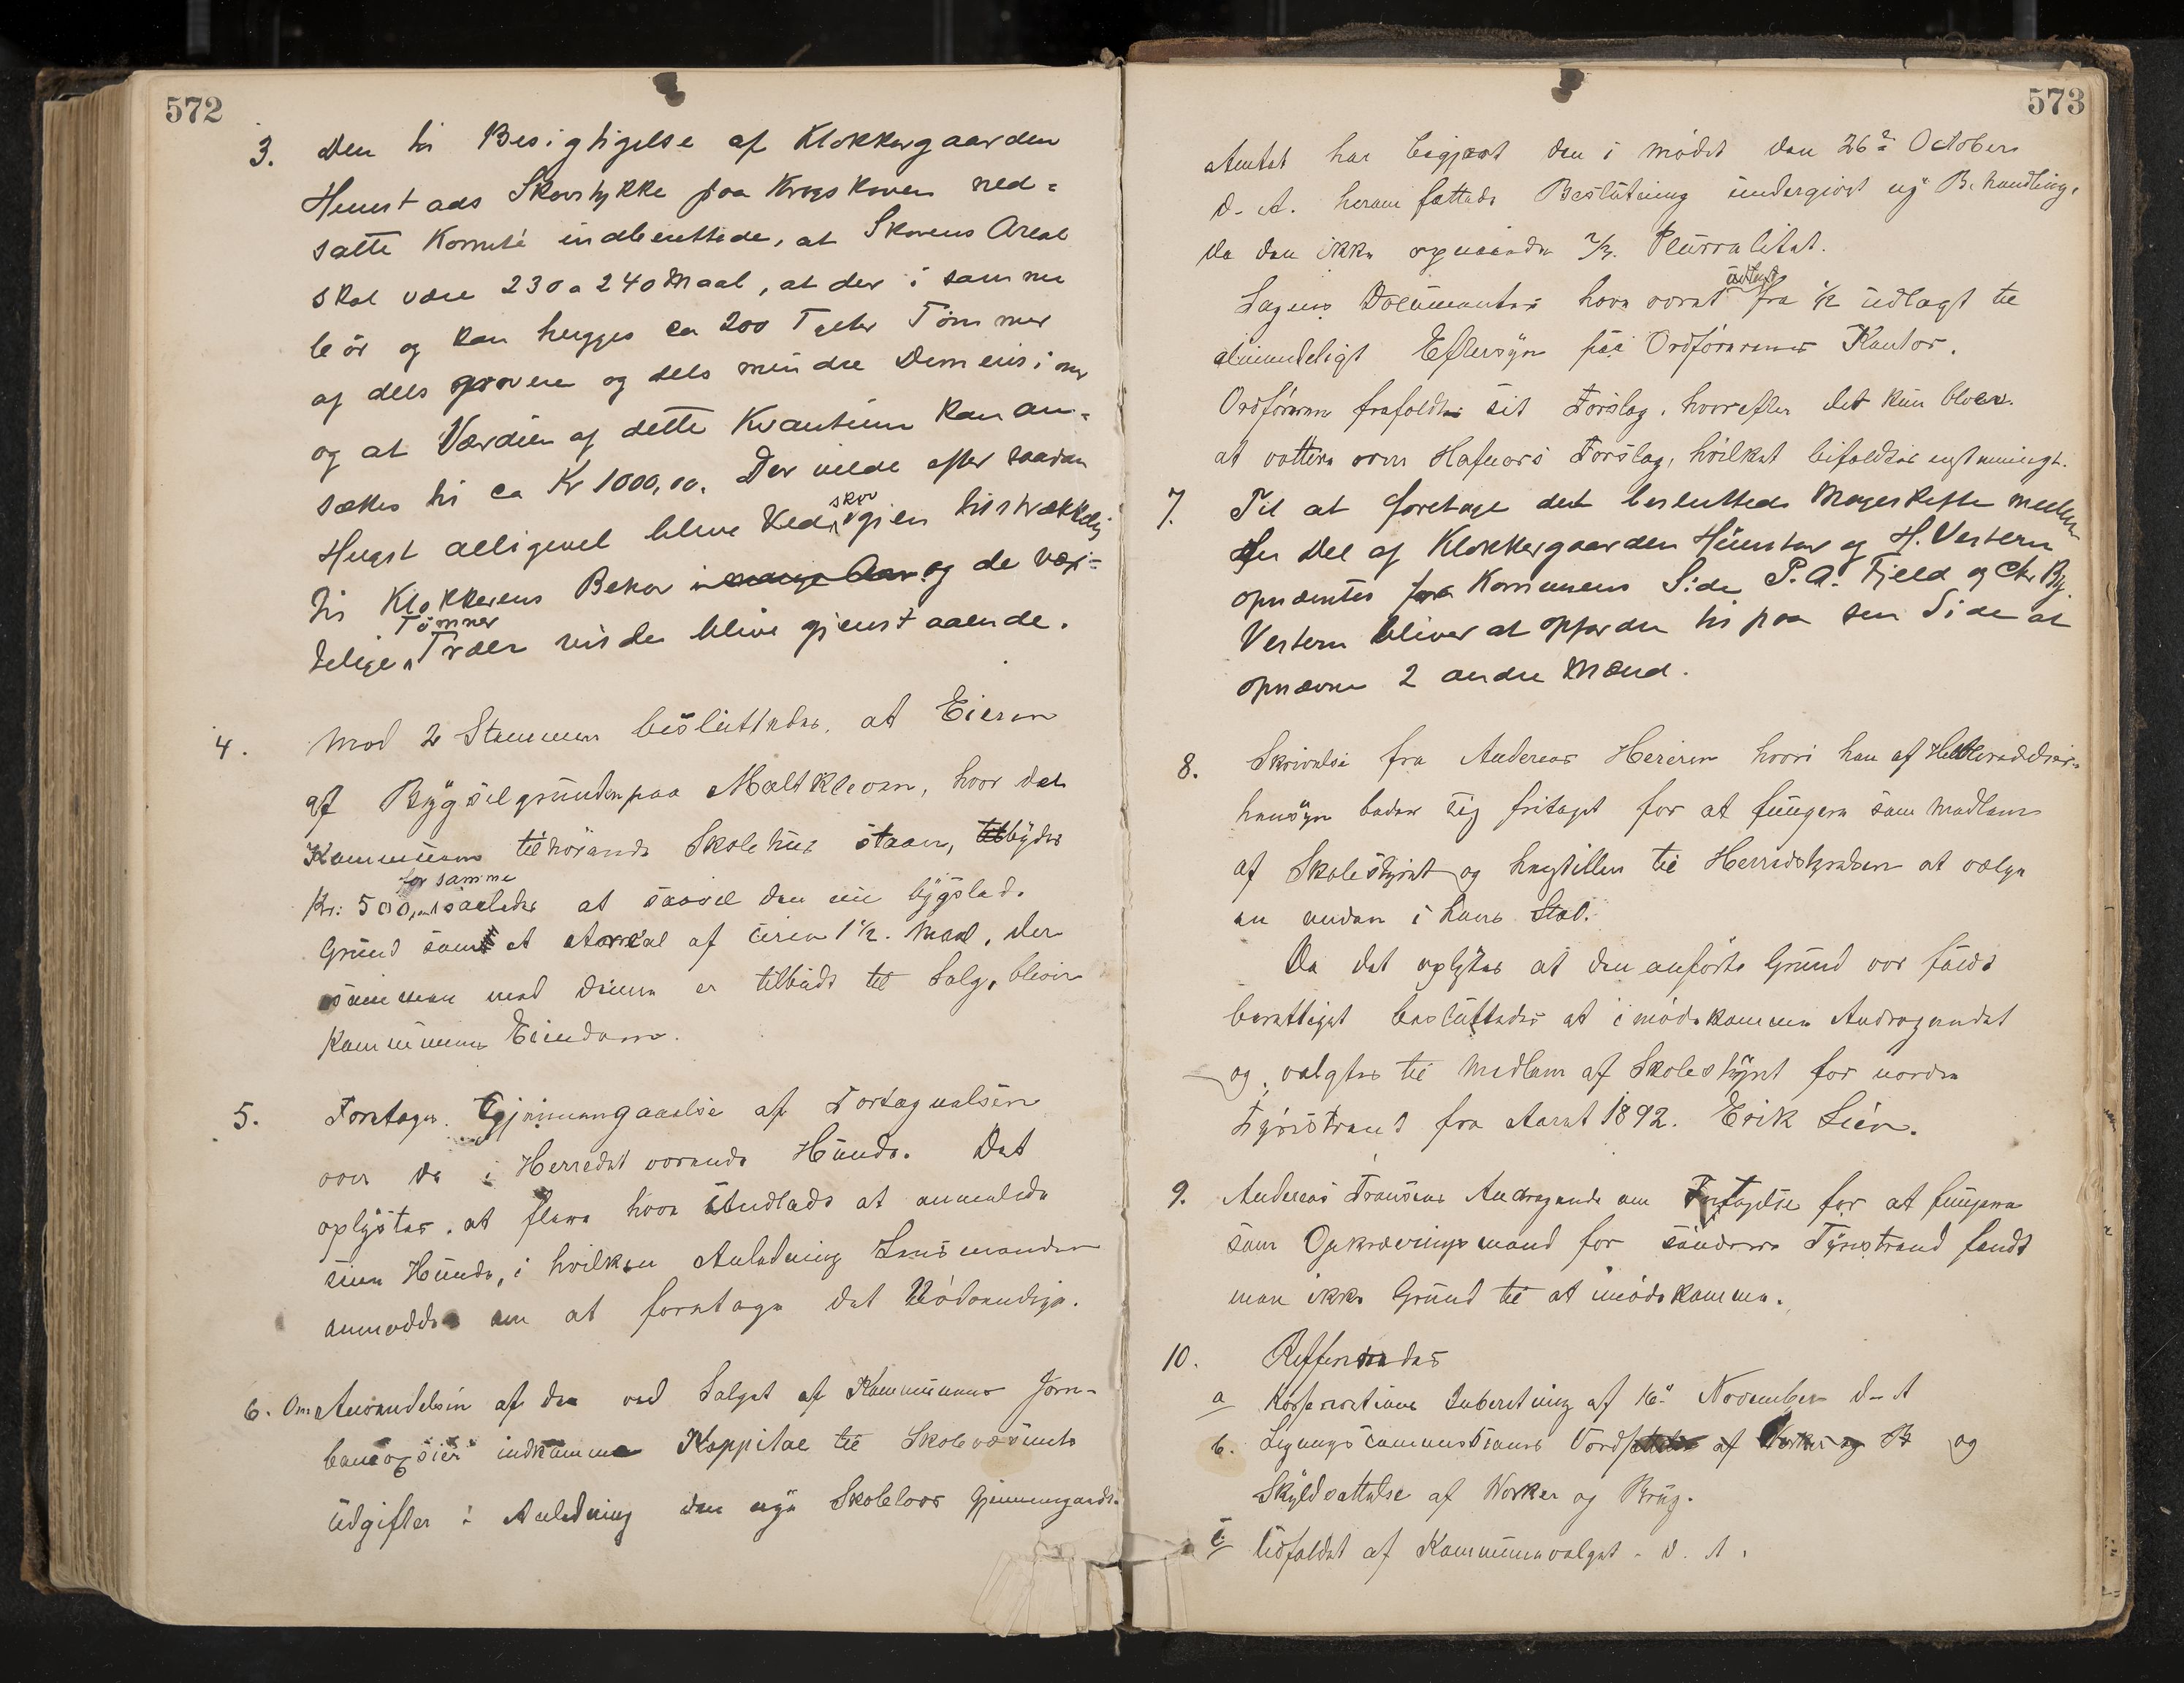 572
3. Den til Besigtigelse af Klokkergaarden
Hunstads Skovstykke paa Krogskoven ned-
satte Komité indberettede, at Skovens Areal
skal være 230 a 240 Maal, at der i samme
bør og kan hugges ca 200 Tylter Tømmer
af dels grovere og dels mindre Dimensioner
og at Værdien af dette Kvantum kan an-
sættes til ca Kr 1000,00. Der vilde efter saadan
Hugst alligevel blive Vedskov igjen tilstrækkelig
til Klokkerens Behov i mange Aar og de vær-
dige Tømmer Træer vilde blive gjenstaaende.
4. Mod 2 Stemmer besluttedes, at Eieren
af Bygselgrunden paa Moltkleven, hvor det
Kommunen tilhørende Skolehus staar, tilbydes
Kr: 500,00 for samme saaledes at saavel den nu bygslede
Grund samt et Areal af circa 1 1/2 Maal, der
sammen med denne er tilbudt til Salg, bliver
Kommunens Eiendom.
5. Foretoges Gjennemgaaelse af Fortegnelsen
over de i Herredet værende Hunde. Det
oplystes, at flere have undladt at anmelde
sine Hunde, i hvilken Anledning Lensmanden
anmodes om at foretage det Nødvendige.
6. Om Anvendelsen af den ved Salget af Kommunens Jern-
baneaksier indkomne Kappital til Skolevæsenets
Udgifter i Anledning den nye Skolelovs Gjennemgaaelse
573
Amtet har begjæret den i mødet den 26de October
d. A. herom fattede Beslutning undergivet ny Behandling,
da den ikke opnaaede 2/3 Plurralitet.
Sagens Documenter have været udlagt fra 1/12 udlagt til
almindeligt Eftersyn paa Ordførerens Kontor.
Ordføreren frafaldt sit Forslag, hvorefter det kun blev
at vottere over Hafnors Forslag, hvilket bifaldtes enstemmigt.
7. Til at foretage det besluttede Mageskifte mellem
en Del af Klokkergaarden Hunstad og H. Vestern
opnævntes fra Kommunens Side P. A. Fjeld og Chr By.
Vestern bliver at opfordre til paa sin Side at
opnævne 2 andre Mænd.
8. Skrivelse fra Andreas Hereren hvori han af Helbreds-
hensyn beder sig fritaget for at fungere som Medlem
af Skolestyret og henstiller til Herredstyrelsen at vælge
en anden i hans Sted.
Da det oplystes at den anførte Grund var fuldt
berettiget besluttedes at imødekomme Andragendet
og valgtes til Medlem af Skolestyret for nordre
Tyristrand fra Aaret 1892. Erik Lien.
9. Andreas Fransens Andragende om Fritagelse for at fungere
som Opkrævningsmand for søndre Tyristrand fandt
man ikke Grund til at imødekomme.
10. Refferertes
a Korporations Inberetning af 16de November d. A
b. Ligningscommissionens Værdsættelse af Værker og B og
Skyldsættelse af Værker og Brug.
c Udfaldet af Kommunevalget d. A.